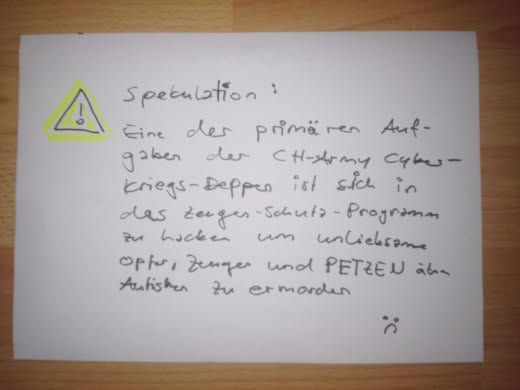 Spekulation:
Eine der primären Auf-
gaben der CH-Army Cyber-
Kriegs-Deppen ist sich in
das Zeugen-Schutz-Programm
zu hacken um unliebsame
Opfer, Zeugen und PETZEN ähm
Autisten zu ermorden